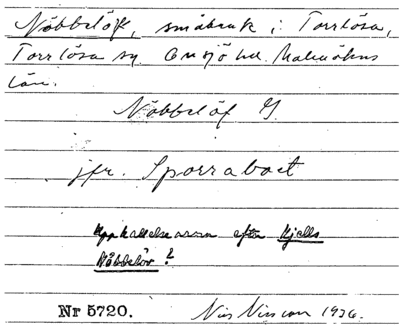 Nöbbelöf, småbruk i Torrlösa,
Torrlösa sn. Onsjö hd. Malmöhus
län.
Nöbbelöf
jfr. Sporraboet
Uppkallelsenamn efter Kjells
Nöbbelöv?
Nr 5720. Nils Nilsson 1926.